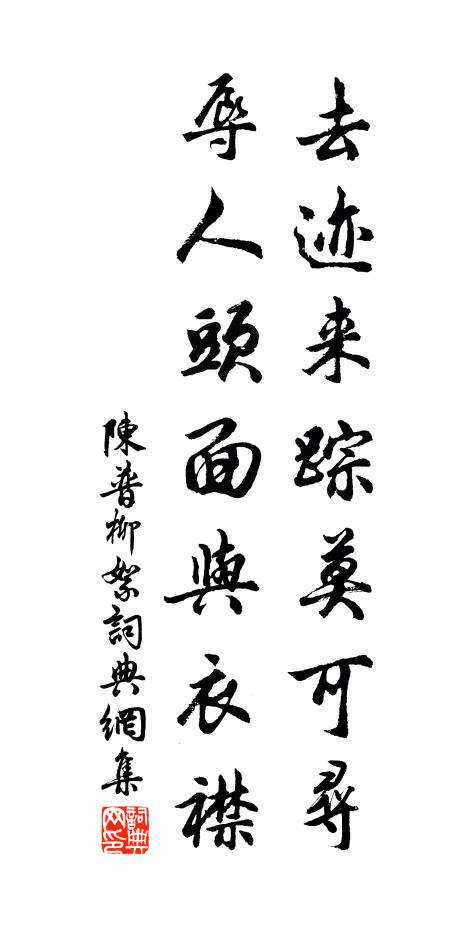 去迹来踪莫可尋
辱人頭面與衣襟
陳普柳絮詞典網集
詞典
网印